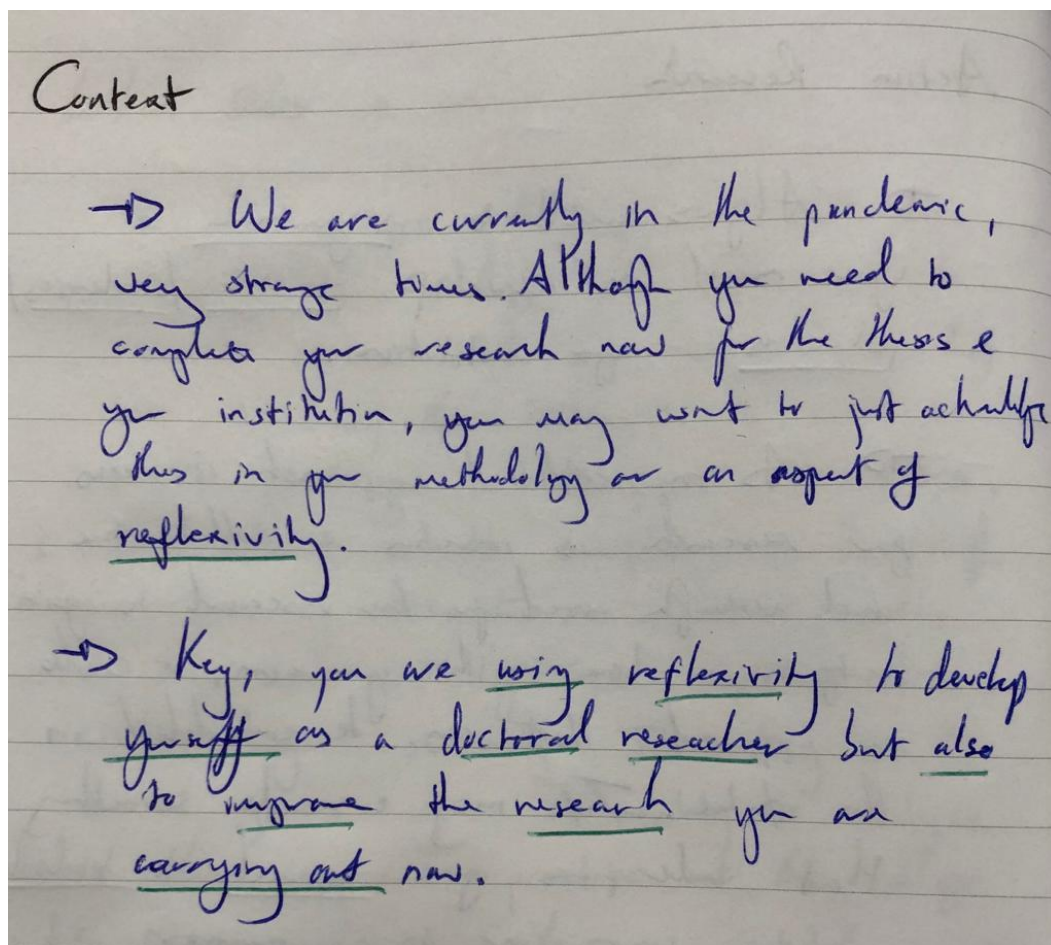 Context
→ We are currently in the pandemic,
very strange times. Although you need to
complete your research now for the thesis &
your institution, you may want to just acknowledge
this in your methodology or an aspect of
reflexivity.
→ Key, you are using reflexivity to develop
yourself as a doctoral reseacher but also
to improve the research you are
carrying out now.